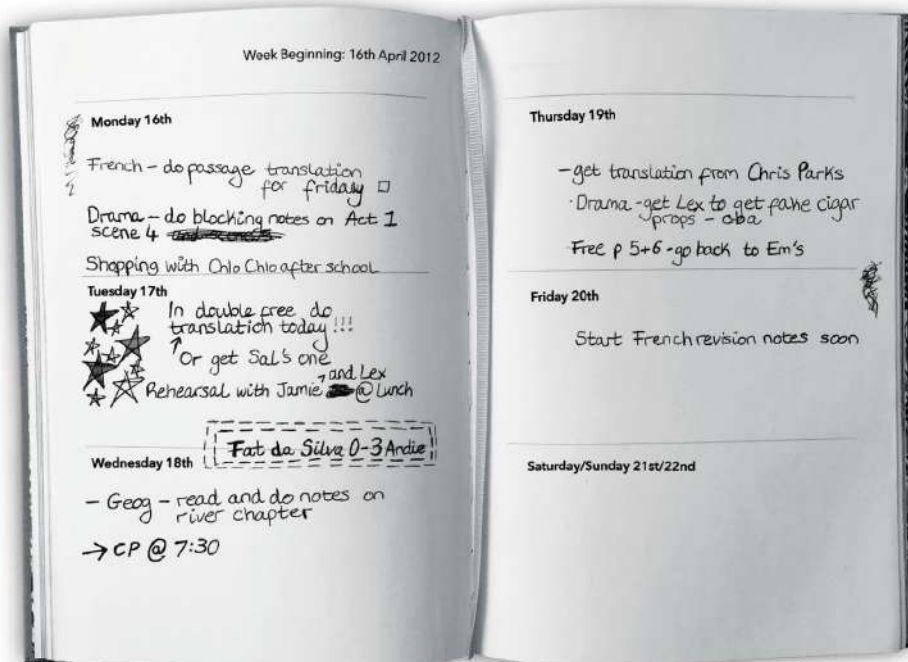 Week Beginning: 16th April 2012
Monday 16th
French - do passage translation
for friday
Drama - do blocking notes on Act 1
scene 4
Shopping with Chlo Chlo after school
Tuesday 17th
In double free do
translation today !!!
Or get Sal's one
and Lex
Rehearsal with Jamie @ Lunch
Fat da Silva 0-3 Andie
Wednesday 18th
- Geog - read and do notes on
river chapter
→ CP @ 7:30
Thursday 19th
- get translation from Chris Parks
· Drama - get Lex to get fake cigar
props - oba
· Free p 5+6 - go back to Em's
Friday 20th
Start French revision notes soon
Saturday/Sunday 21st/22nd